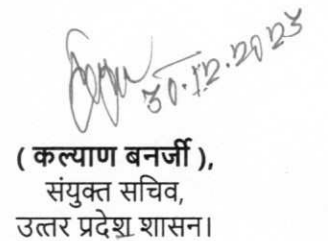 30.12.2023
( कल्याण बनर्जी ),
संयुक्त सचिव,
उत्तर प्रदेश शासन।